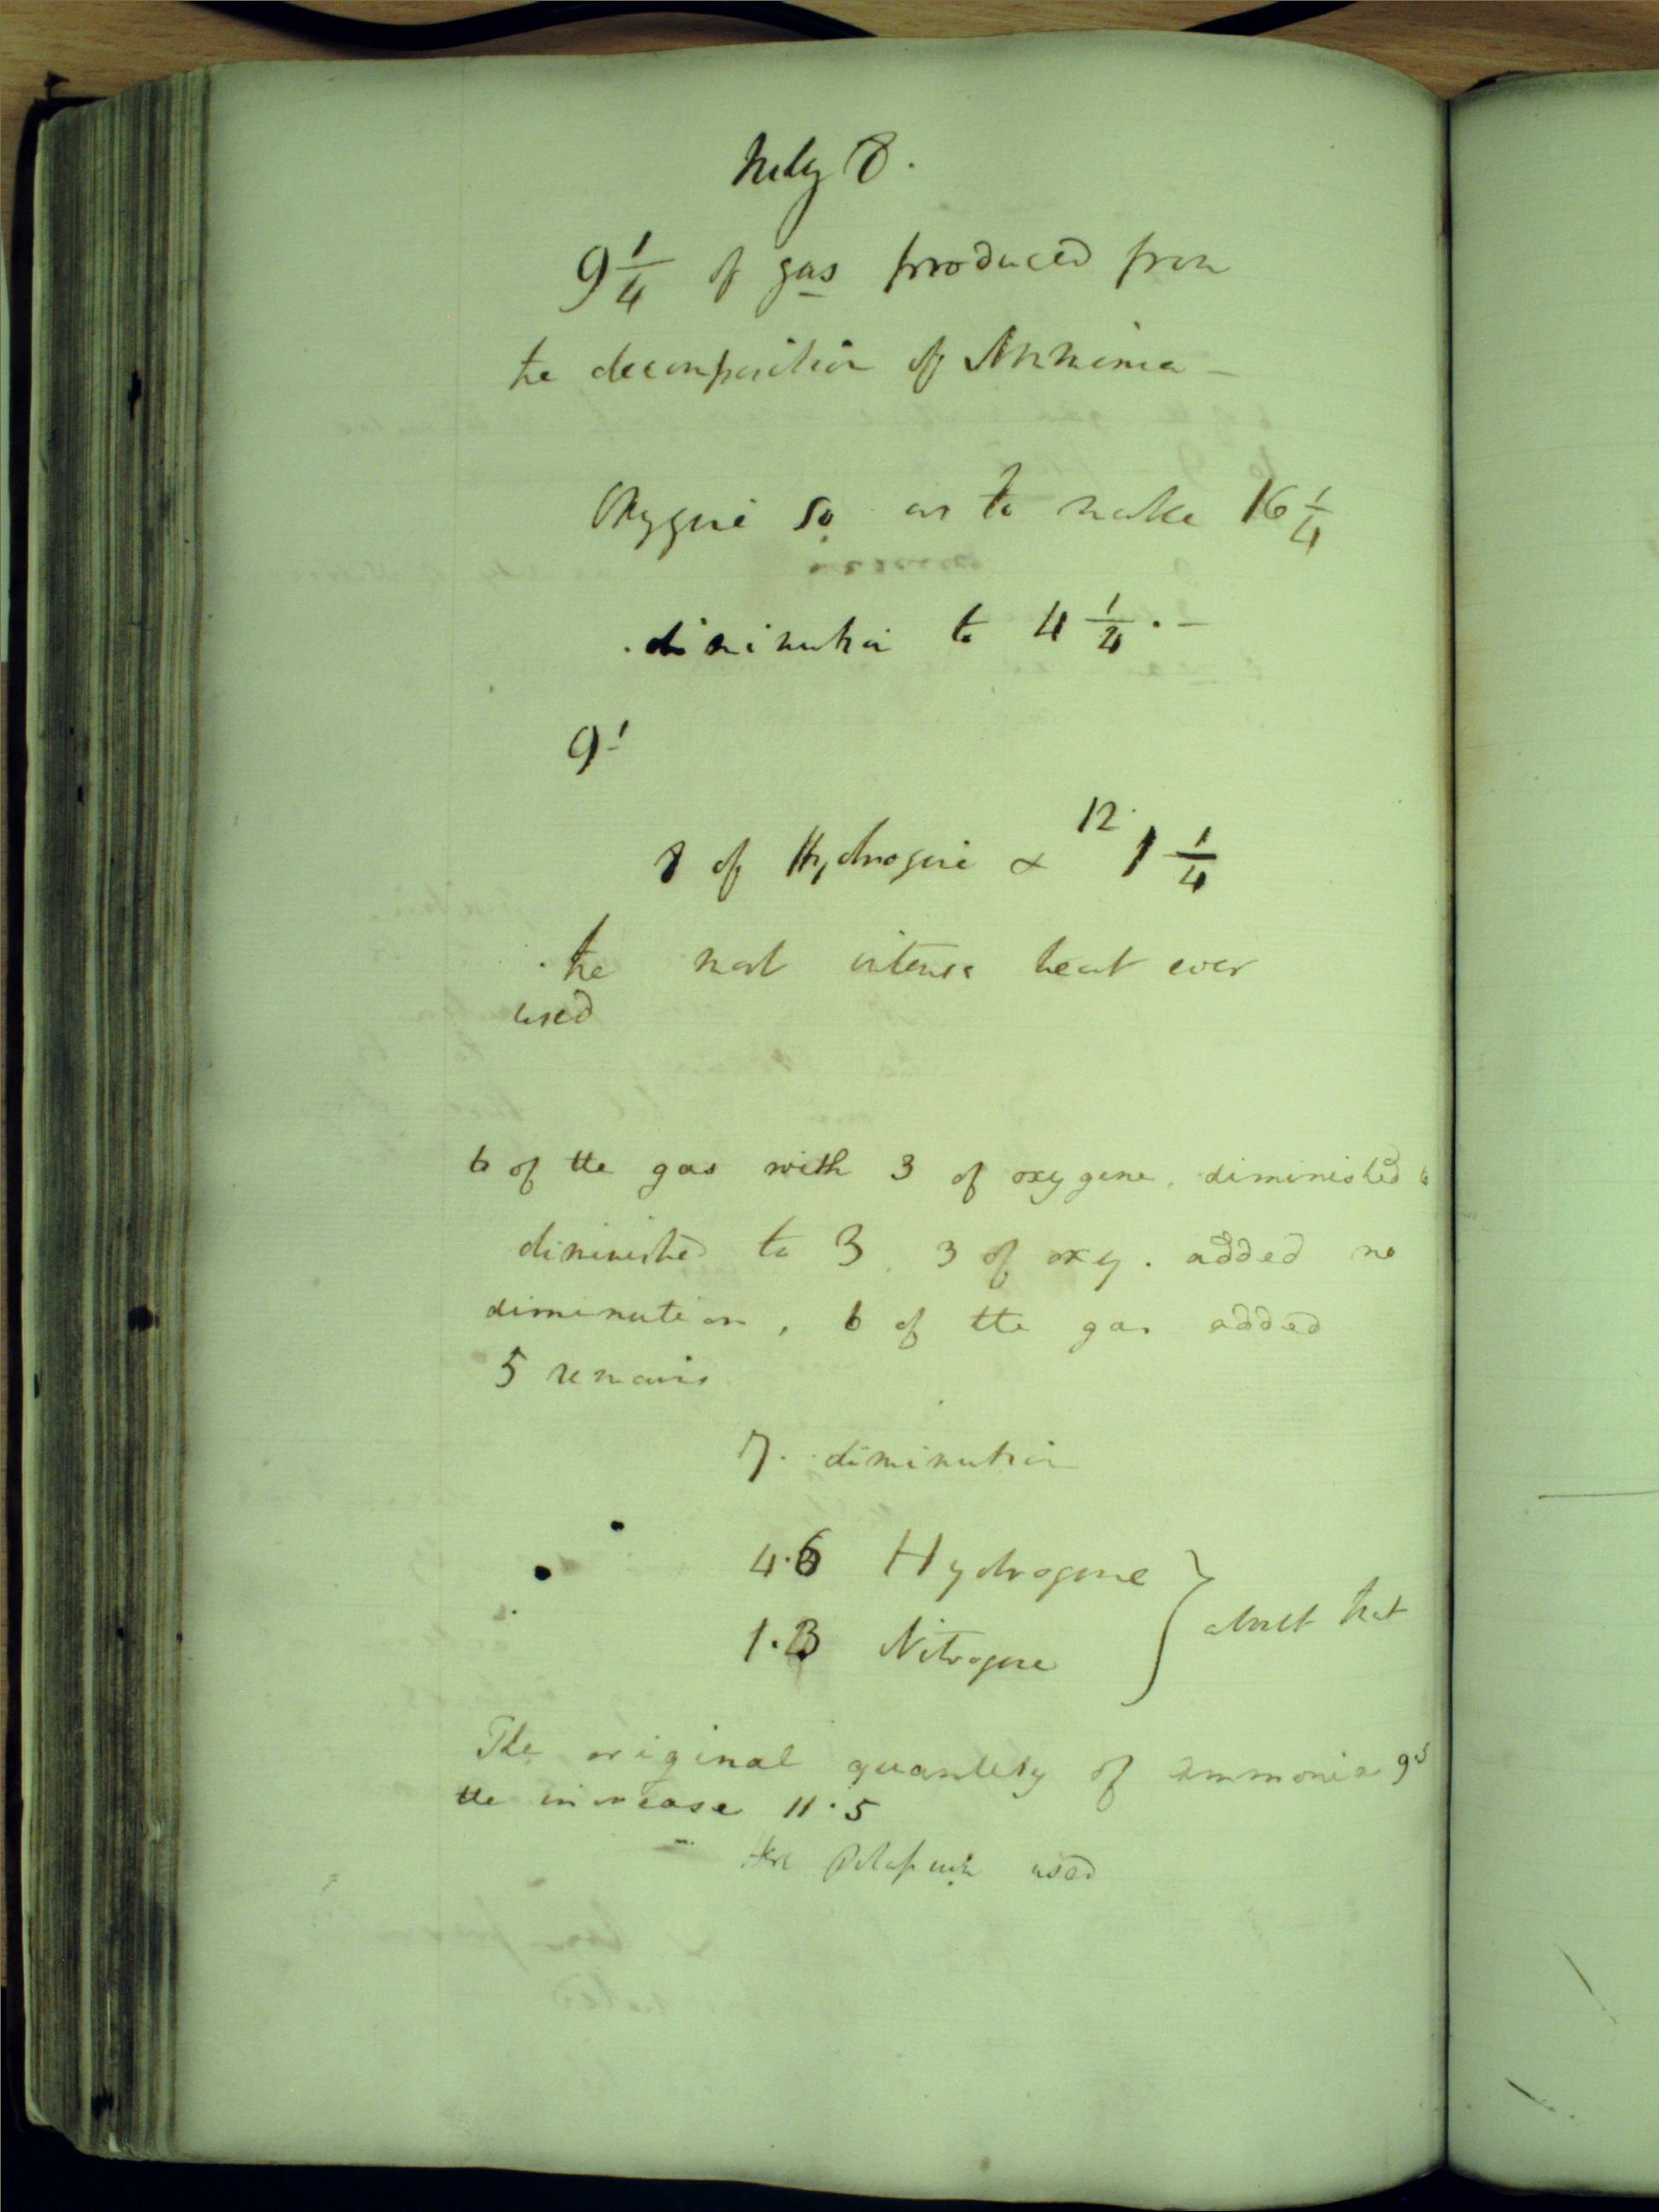 July 8.
9 1/4 of gas produced from
the decomposition of Ammonia -
Oxygene so as to make 16 1/4
diminution to 4 1/4. -
9 1
8 of Hydrogene & 12 1 1/4
the most intense heat ever
used
6 of the gas with 3 of oxygene, diminished to
diminished to 3. 3 of oxy. added no
diminution, 6 of the gas added
5 remains
7. diminution
4.6 Hydrogene
about that
1.3 Nitrogene
The original quantity of ammonia 9.5
the increase 11.5
used